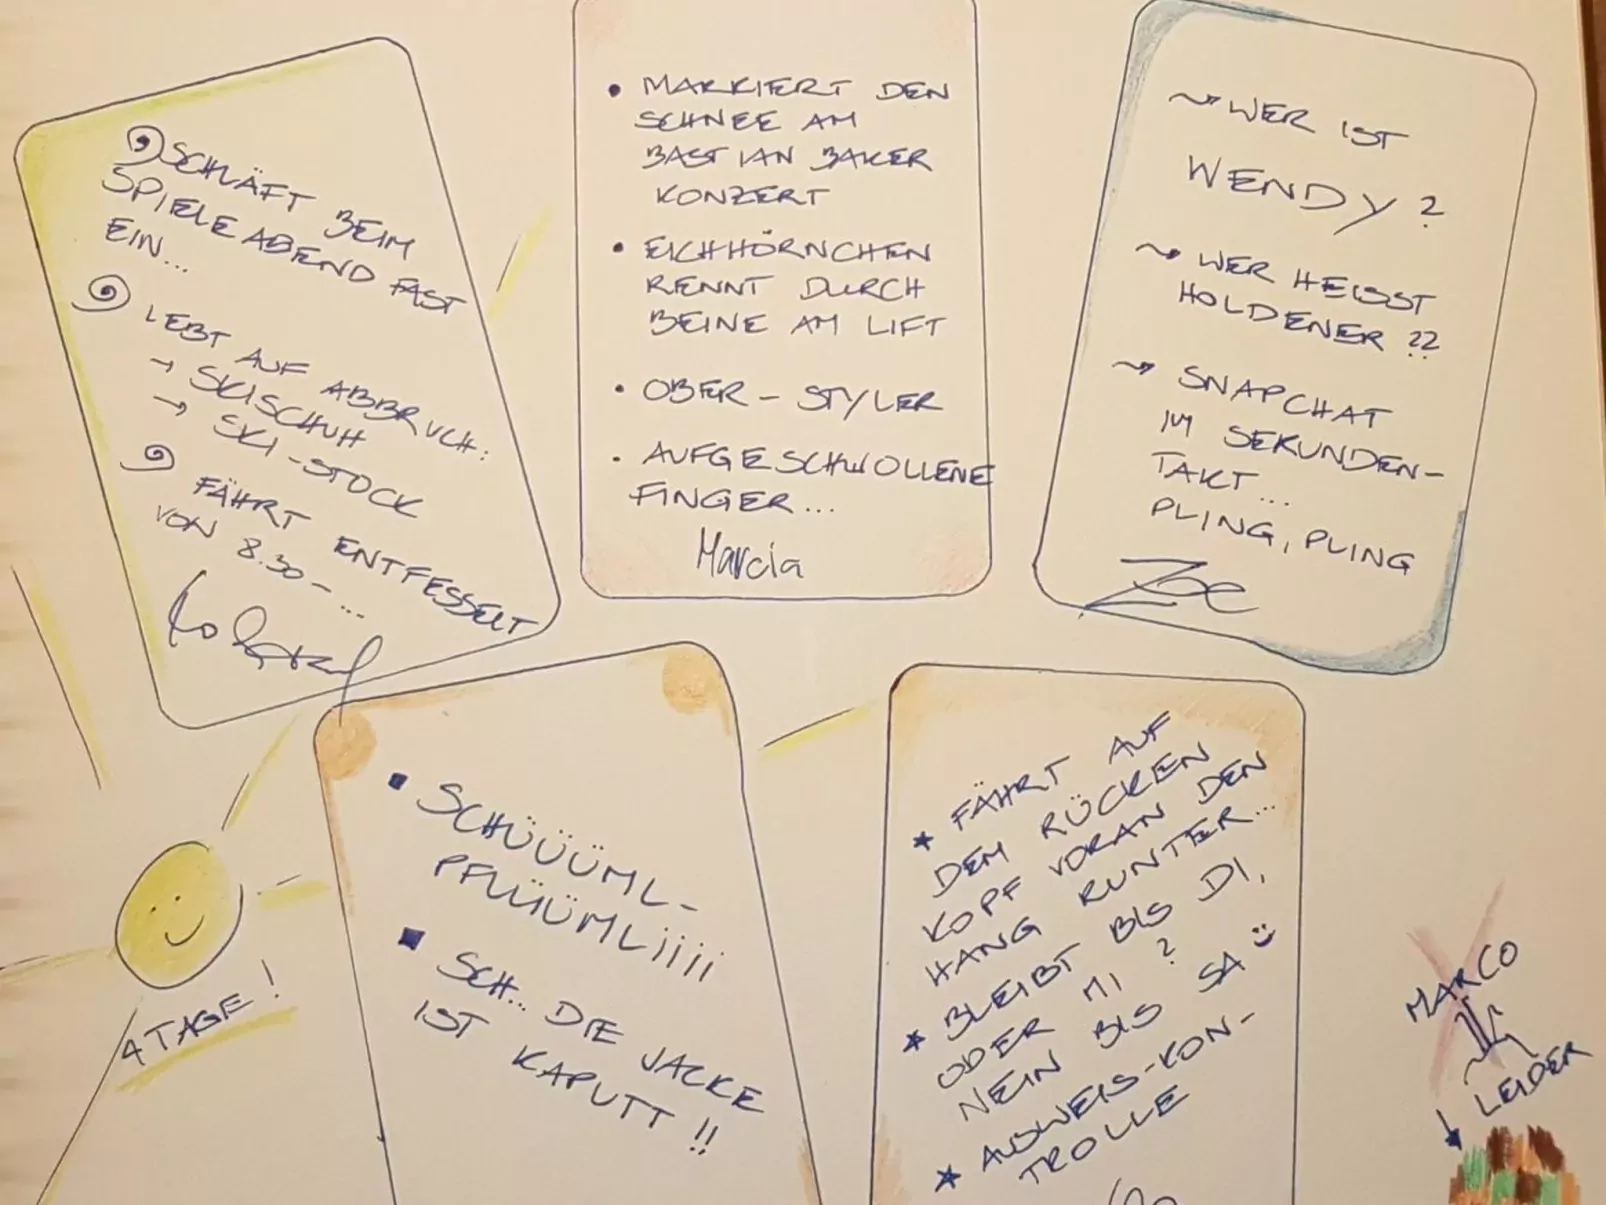 SCHLÄFT BEIM
SPIELEABEND FAST
EIN...
LEBT AUF ABBRUCH:
→ SKISCHUH
→ SKI-STOCK
FÄHRT ENTFESSELT
VON 8.30 - ...
• MARKIERT DEN
SCHNEE AM
BASTIAN BAKER
KONZERT
• EICHHÖRNCHEN
RENNT DURCH
BEINE AM LIFT
• OBER-STYLER
• AUFGESCHWOLLENE
FINGER...
Marcia
WER IST
WENDY?
WER HEISST
HOLDENER??
SNAPCHAT
IM SEKUNDEN-
TAKT...
PLING, PLING
Zoe
▪ SCHÜÜÜML-
PFLÜÜÜMLiiii
▪ SCH... DIE JACKE
IST KAPUTT!!
★ FÄHRT AUF
DEM RÜCKEN
KOPF VORAN DEN
HANG RUNTER...
★ BLEIBT BIS DI,
ODER MI?
NEIN BIS SA
★ AUSWEIS-KON-
TROLLE
4 TAGE!
MARCO
LEIDER